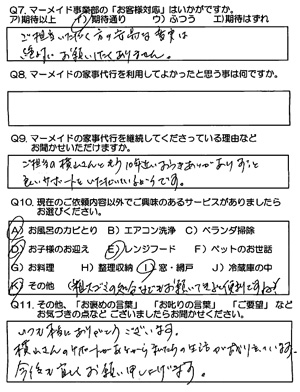 Q7. マーメイド事業部の「お客様対応」はいかがですか。
ア)期待以上 イ)期待通り ウ)ふつう エ)期待はずれ
お願いしたくありません。
Q8. マーメイドの家事代行を利用してよかったと思う事は何ですか。
Q9. マーメイドの家事代行を継続してくださっている理由など
お聞かせいただけますか。
ご担当の横山さんと もう10年近いおつきあいがあり ずっと
良いサポートをいただいているからです。
Q10. 現在のご依頼内容以外でご興味のあるサービスがありましたら
お選びください。
A)お風呂のカビとり B)エアコン洗浄 C)ベランダ掃除
D)お子様のお迎え E)レンジフード F)ペットのお世話
G)お料理 H)整理収納 I)窓・網戸 J)冷蔵庫の中
K)その他
Q11. その他、「お褒めの言葉」「お叱りの言葉」「ご要望」など
お気づきの点など ございましたらお聞かせください。
いつも本当にありがとうございます。
横山さんのサポートがあるから私たちの生活が成り立っています。
今後も宜しくお願い申し上げます。